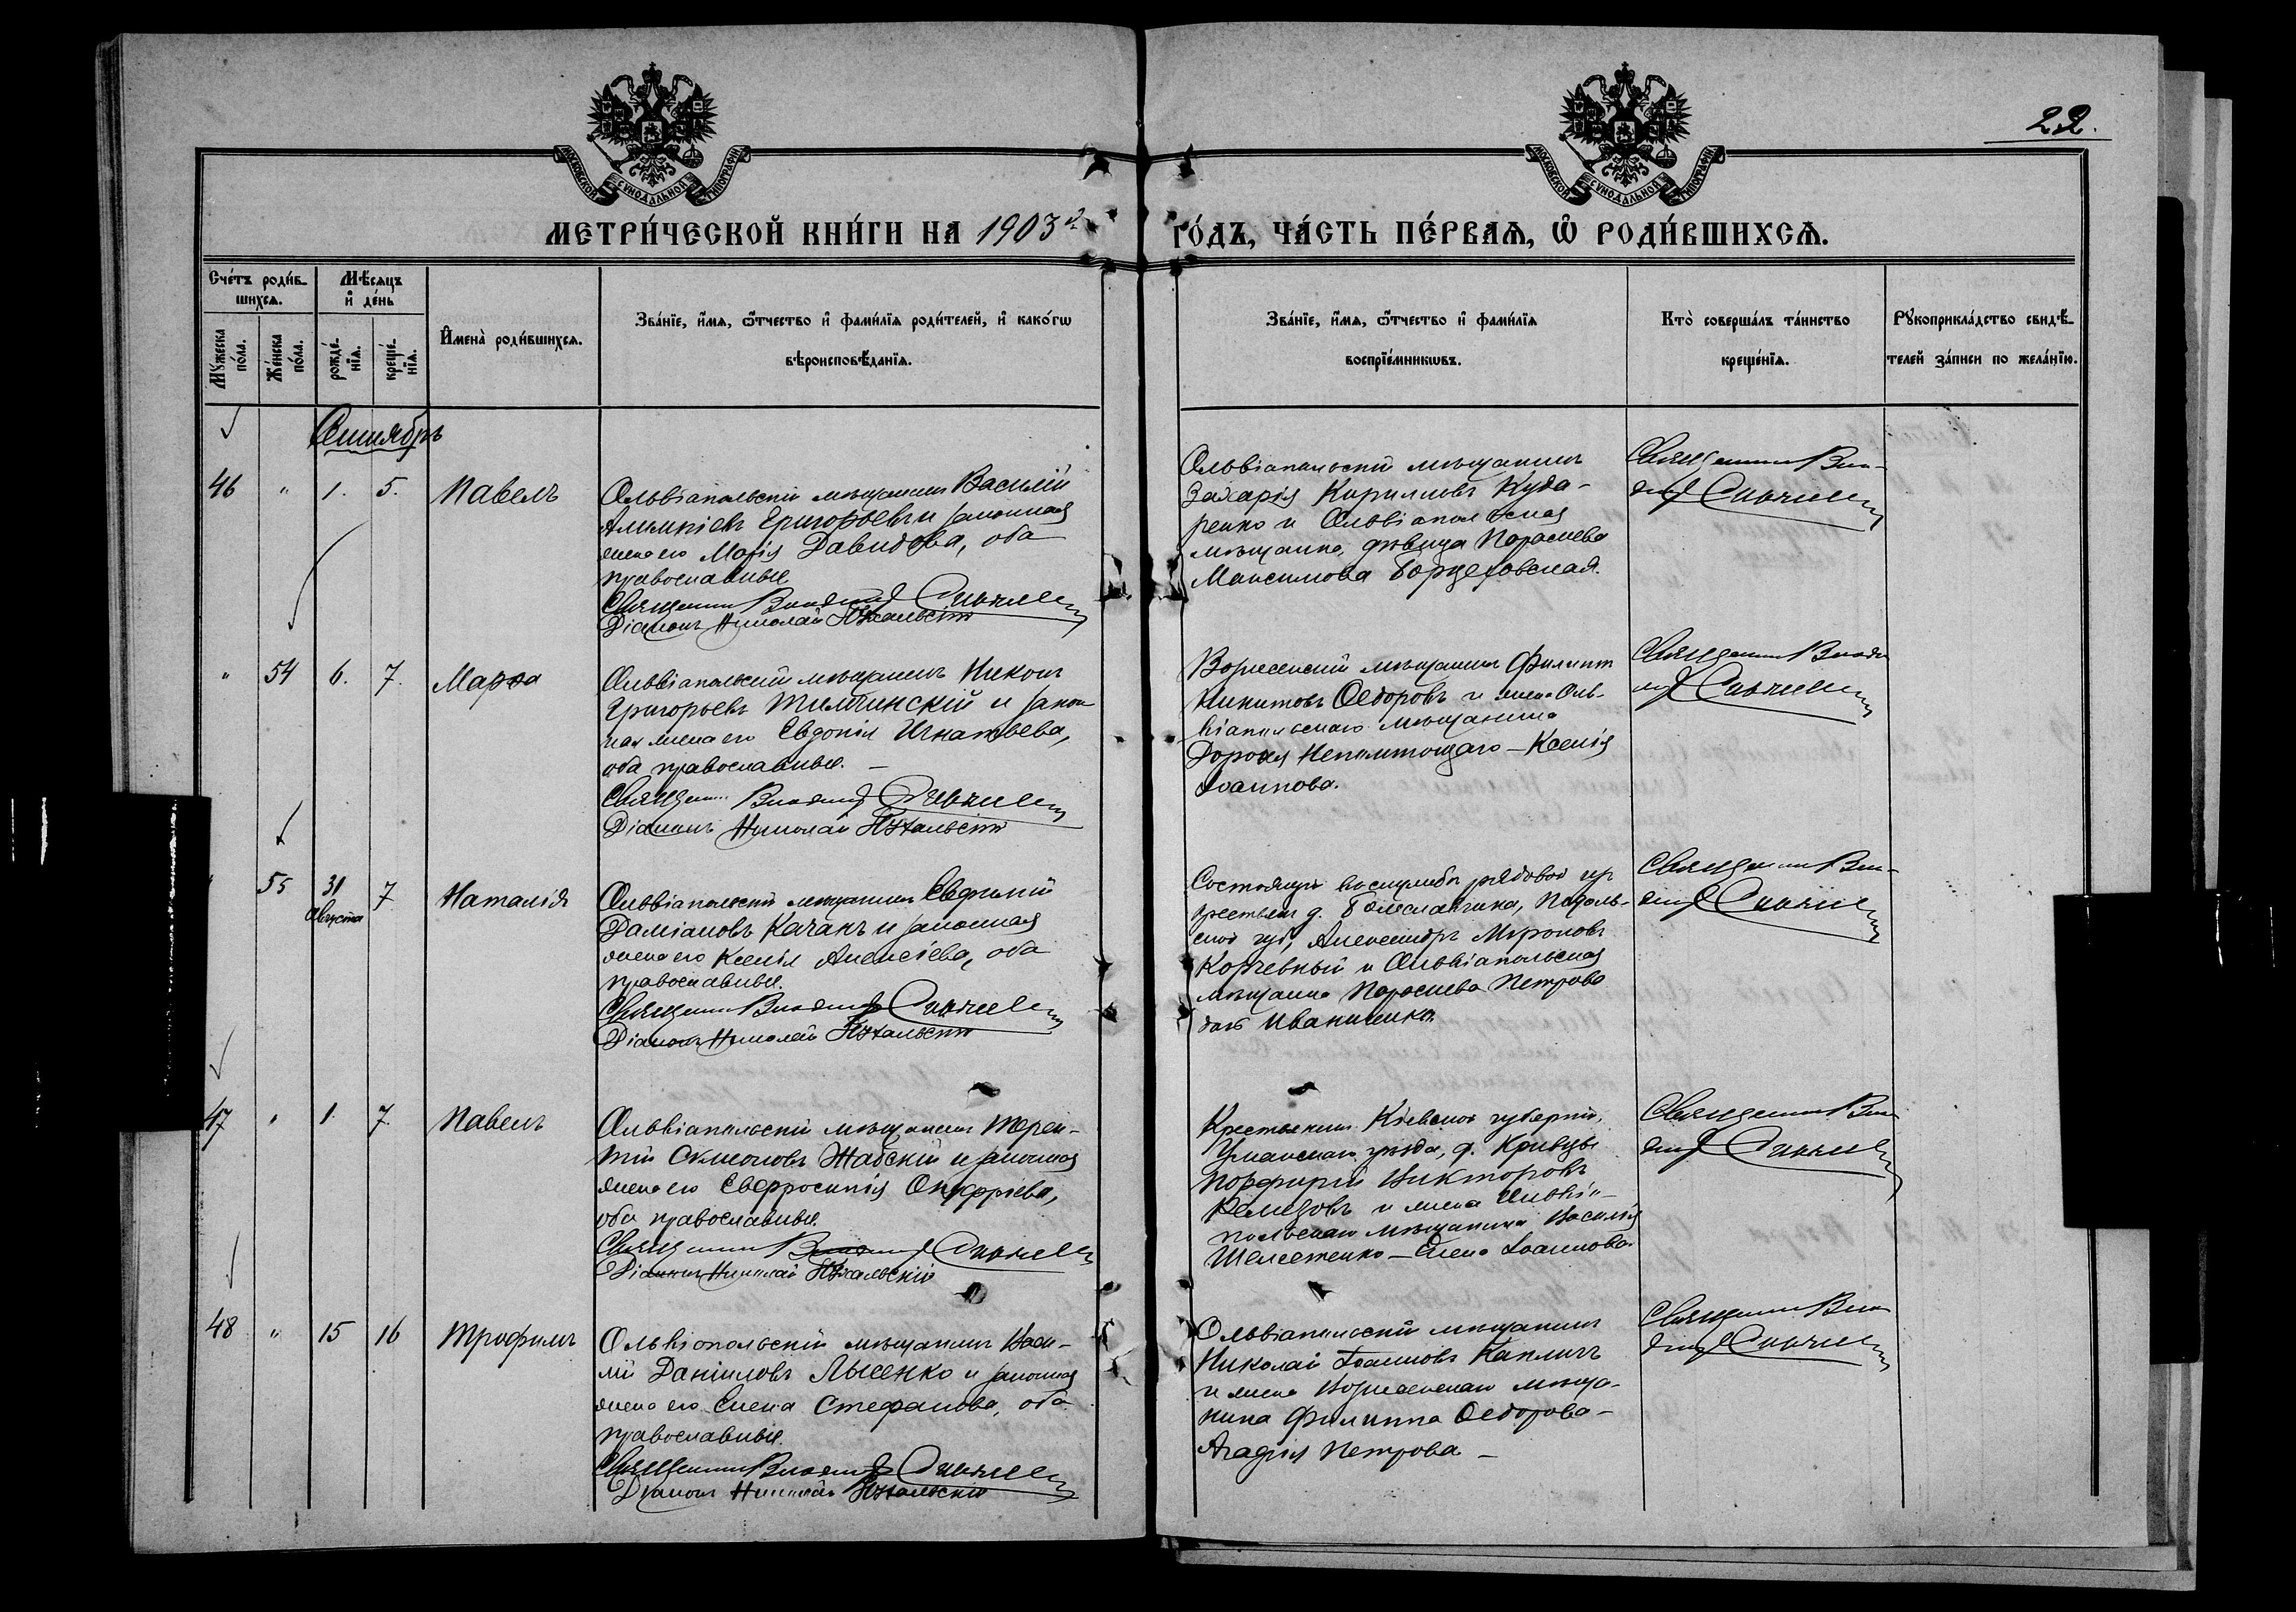 22.
МОСКОВСКОЙ СѴНОДАЛЬНОЙ ТИПОГРАФІИ
МОСКОВСКОЙ СѴНОДАЛЬНОЙ ТИПОГРАФІИ
МЕТРИ́ЧЕСКОЙ КНИ́ГИ НА 1903 г.
ГО́ДЪ, ЧА́СТЬ ПЕ́РВАѦ, Ѡ҆ РОДИ́ВШИХСѦ.
Сче́тъ роди́в-
шихсѧ.
Мѣ́сѧцъ
и҆ де́нь
Мꙋ́жеска
по́ла.
Же́нска
по́ла.
рожде́-
нїѧ.
креще́-
нїѧ.
И҆мена̀ роди́вшихсѧ.
Зва́нїе, и҆́мѧ, ѻ҆́тчество и҆ фами́лїѧ роди́телей, и҆ како́гѡ
вѣроисповѣ́данїѧ.
Зва́нїе, и҆́мѧ, ѻ҆́тчество и҆ фами́лїѧ
воспрїе́мникѡвъ.
Кто̀ соверша́лъ та́инство
креще́нїѧ.
Рꙋкоприкла́дство свидѣ́-
телей за́писи по жела́нїю.
Сентябрь
46 " 1. 5. Павелъ
Ольвіопольскій мѣщанинъ Василій
Алимпіевъ Григорьевъ и законная
жена его Марія Давидова, оба
православные.
Священникъ Владимір
Діаконъ Николай
Ольвіопольскій мѣщанинъ
Захарія Кирилловъ Куда-
ренко и Ольвіопольская
мѣщанка, дѣвица Параскева
Максимова
Священникъ Вла-
димір
" 54 6. 7. Марѳа
Ольвіопольскій мѣщанинъ Никонъ
Григорьевъ Тилтинскій и закон
ная жена его Евдокія Игнатьева,
оба православные. —
Священникъ Владимір
Діаконъ Николай
Вознесенскій мѣщанинъ Филиппъ
Никитовъ Ѳедоровъ и жена Оль-
віопольскаго мѣщанина
Дороѳея Непомнющаго — Ксенія
Іоаннова.
Священникъ Влади
мір
55 31 Августа 7 Наталія
Ольвіопольскій мѣщанинъ Евфимій
Даміановъ Качанъ и законная
жена его Ксенія Алексіева, оба
православные.
Священникъ Владимір
Діаконъ Николай
Состоящій на службѣ рядовой изъ
крестьянъ д. Подоль-
ской губ., Александръ Мироновъ
Корчевный и Ольвіопольская
мѣщанка Параскева Петрова
Иваниченко.
Священникъ Вла-
димір
47 " 1. 7. Павелъ
Ольвіопольскій мѣщанинъ Терен-
тій Симоновъ Жабскій и законная
жена его Евфросинія Онуфріева,
оба православные.
Священникъ Владимір
Діаконъ Николай
Крестьянинъ Кіевской губерніи,
Уманскаго уѣзда, д. Кривцы
Порфирій Викторовъ
Ремезовъ и жена Ольвіо-
польскаго мѣщанина Василія
Шелестенко — Елена Іоаннова.
Священникъ Вла-
димір
48 " 15 16 Трофимъ
Ольвіопольскій мѣщанинъ Васи-
лій Даніиловъ Лысенко и законная
жена его Елена Стефанова, оба
православные.
Священникъ Владимір
Діаконъ Николай
Ольвіопольскій мѣщанинъ
Николай Іоанновъ Каплинъ
и жена Вознесенскаго мѣща-
нина Филиппа Ѳедорова —
Агафія Петрова —
Священникъ Вла
димір